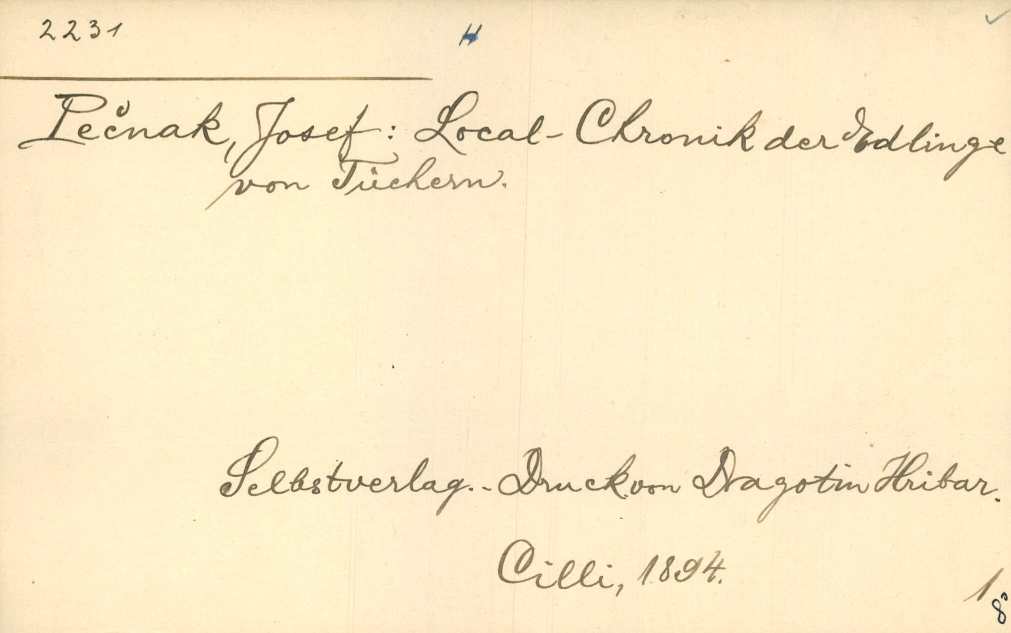 2231 H
Pečnak, Josef: Local-Chronik der Edlinge
von Tüchern.
Selbstverlag.- Druck von Dragotin Hribar.
Cilli, 1894.
1
8°